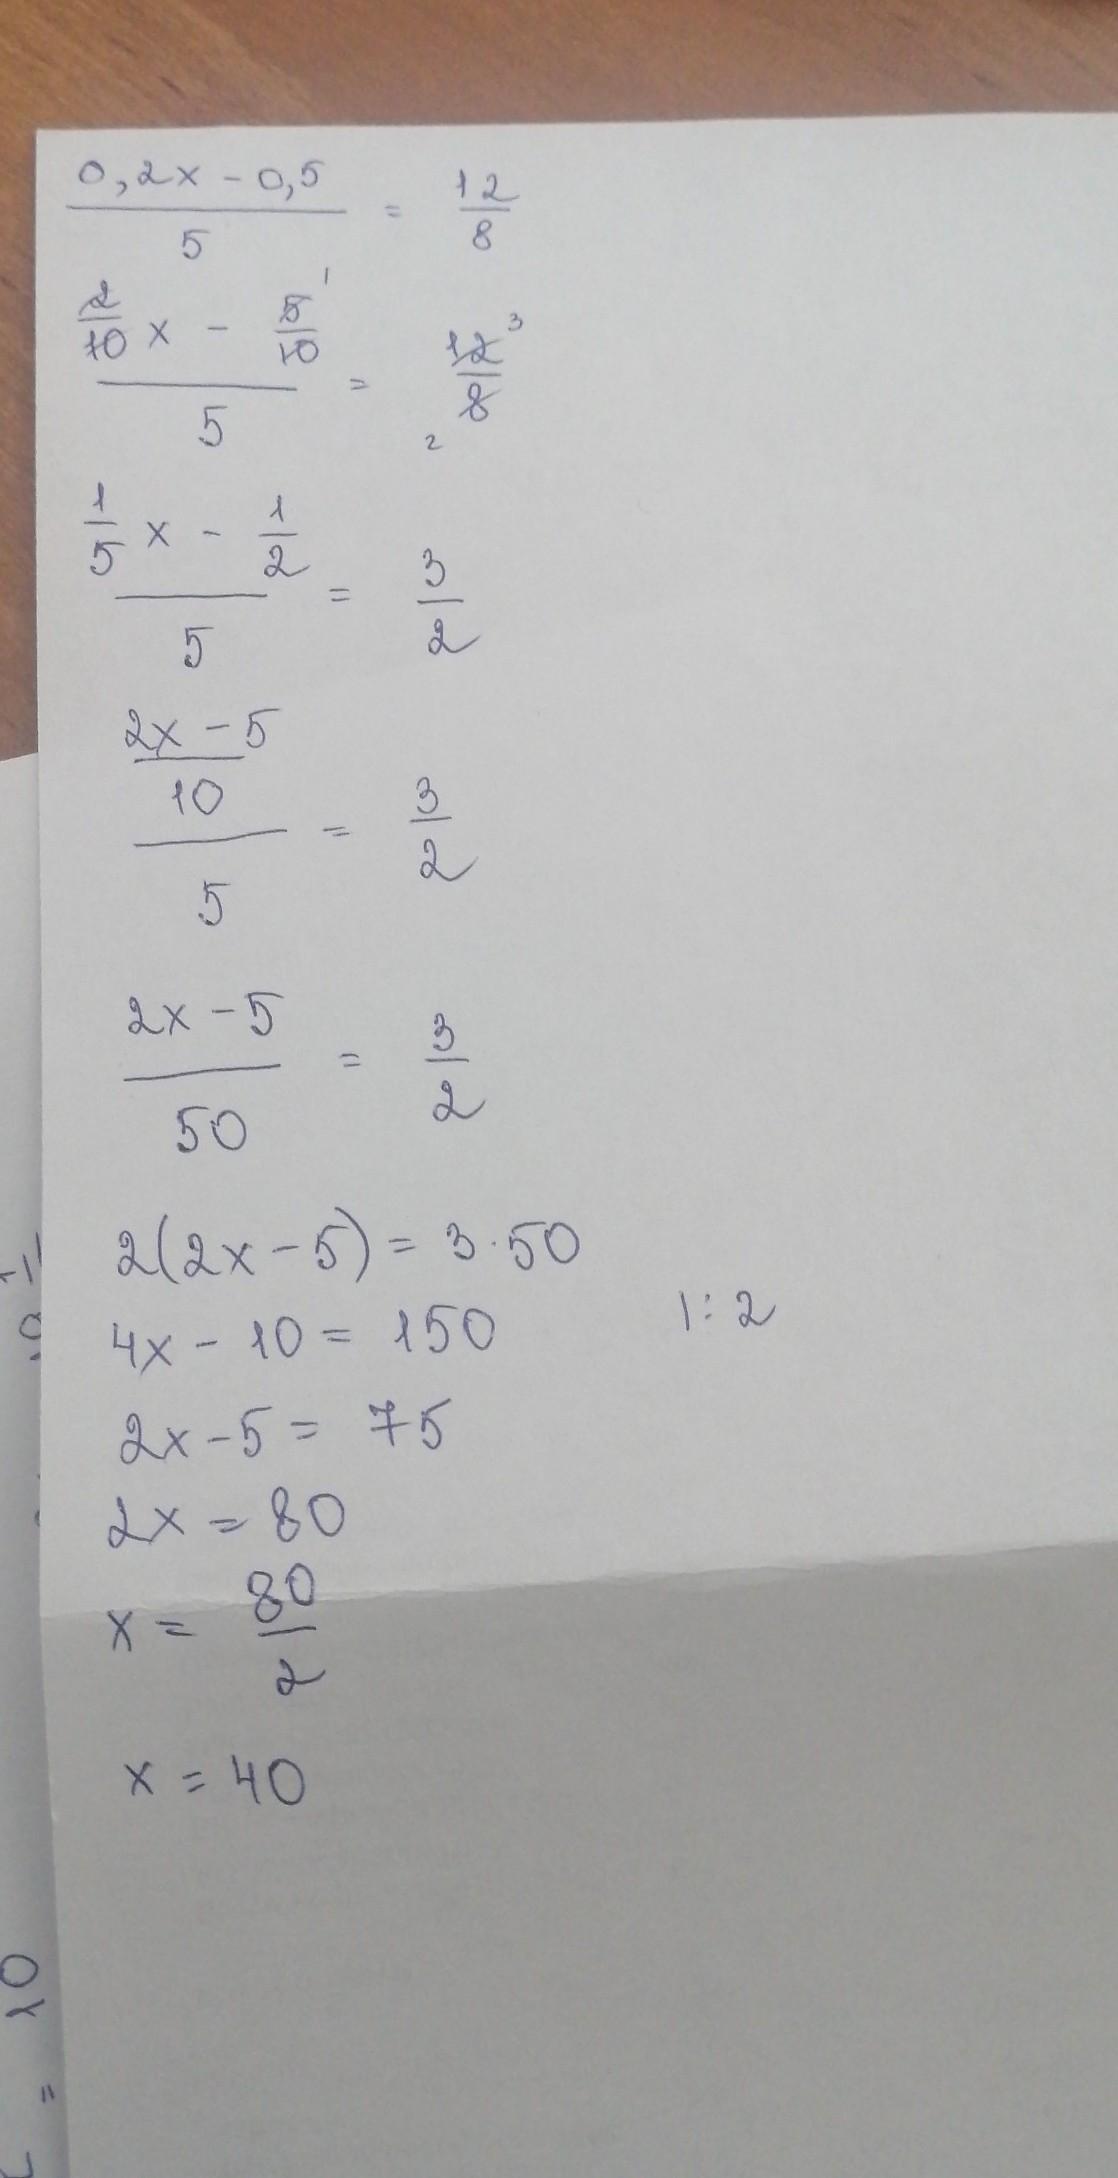 0,2x - 0,5 / 5 = 12/8
2/10 x - 5/10 1 / 5 = 12/8 3 2
1/5 x - 1/2 / 5 = 3/2
2x - 5 / 10 / 5 = 3/2
2x - 5 / 50 = 3/2
2(2x - 5) = 3·50
4x - 10 = 150 |: 2
2x - 5 = 75
2x = 80
x = 80/2
x = 40
10
=